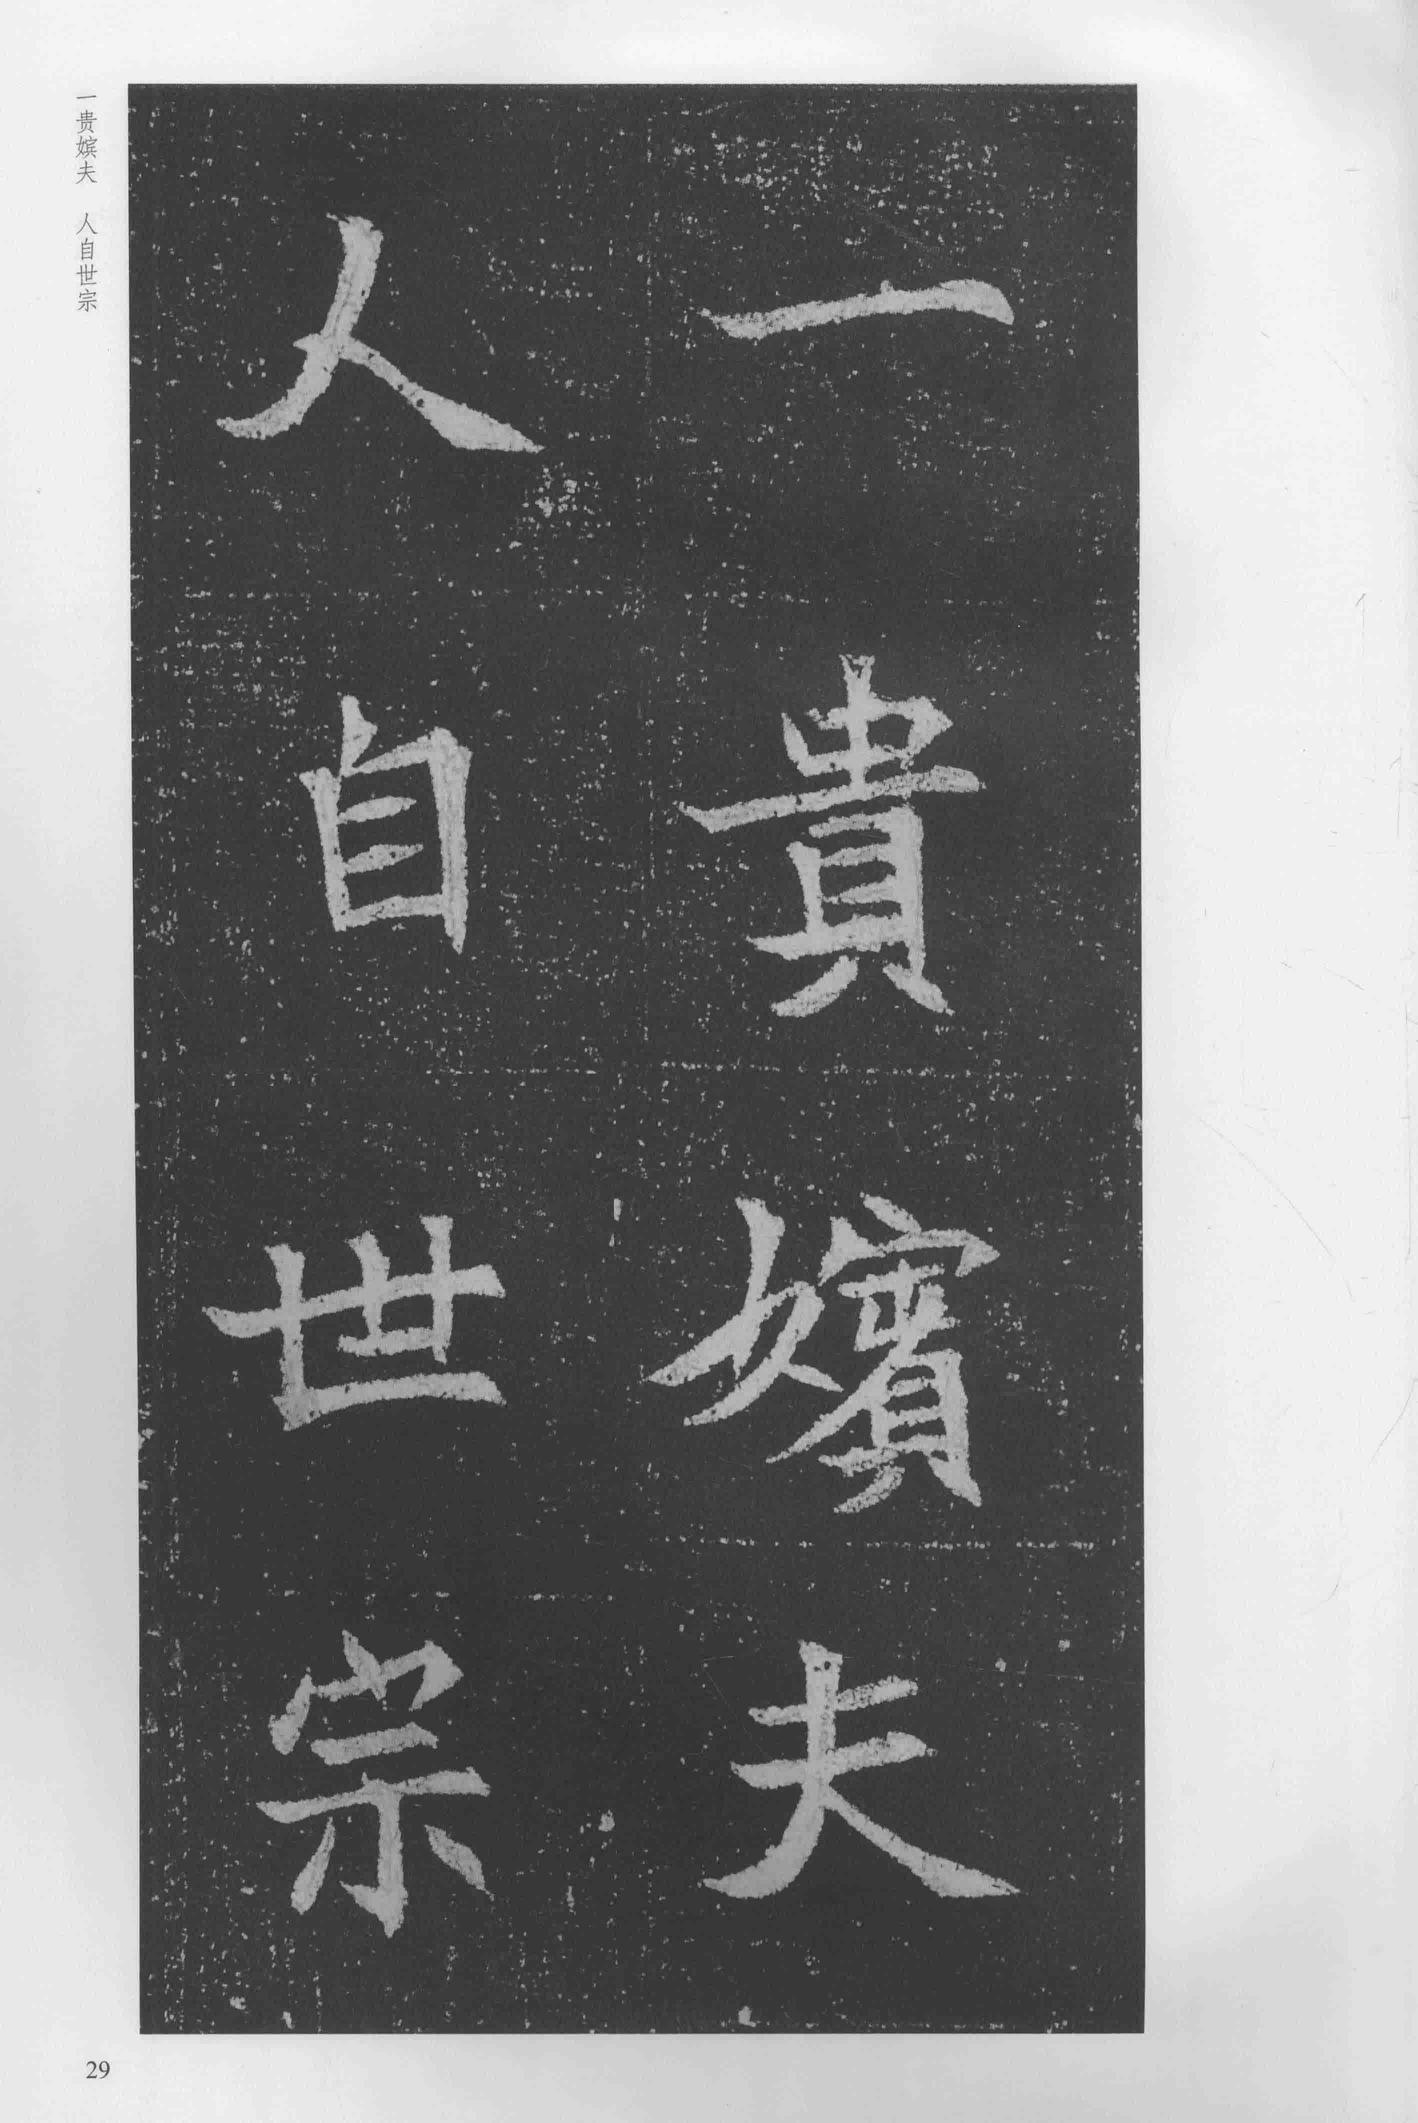 一貴嬪夫
人自世宗
一贵嫔夫　人自世宗
29